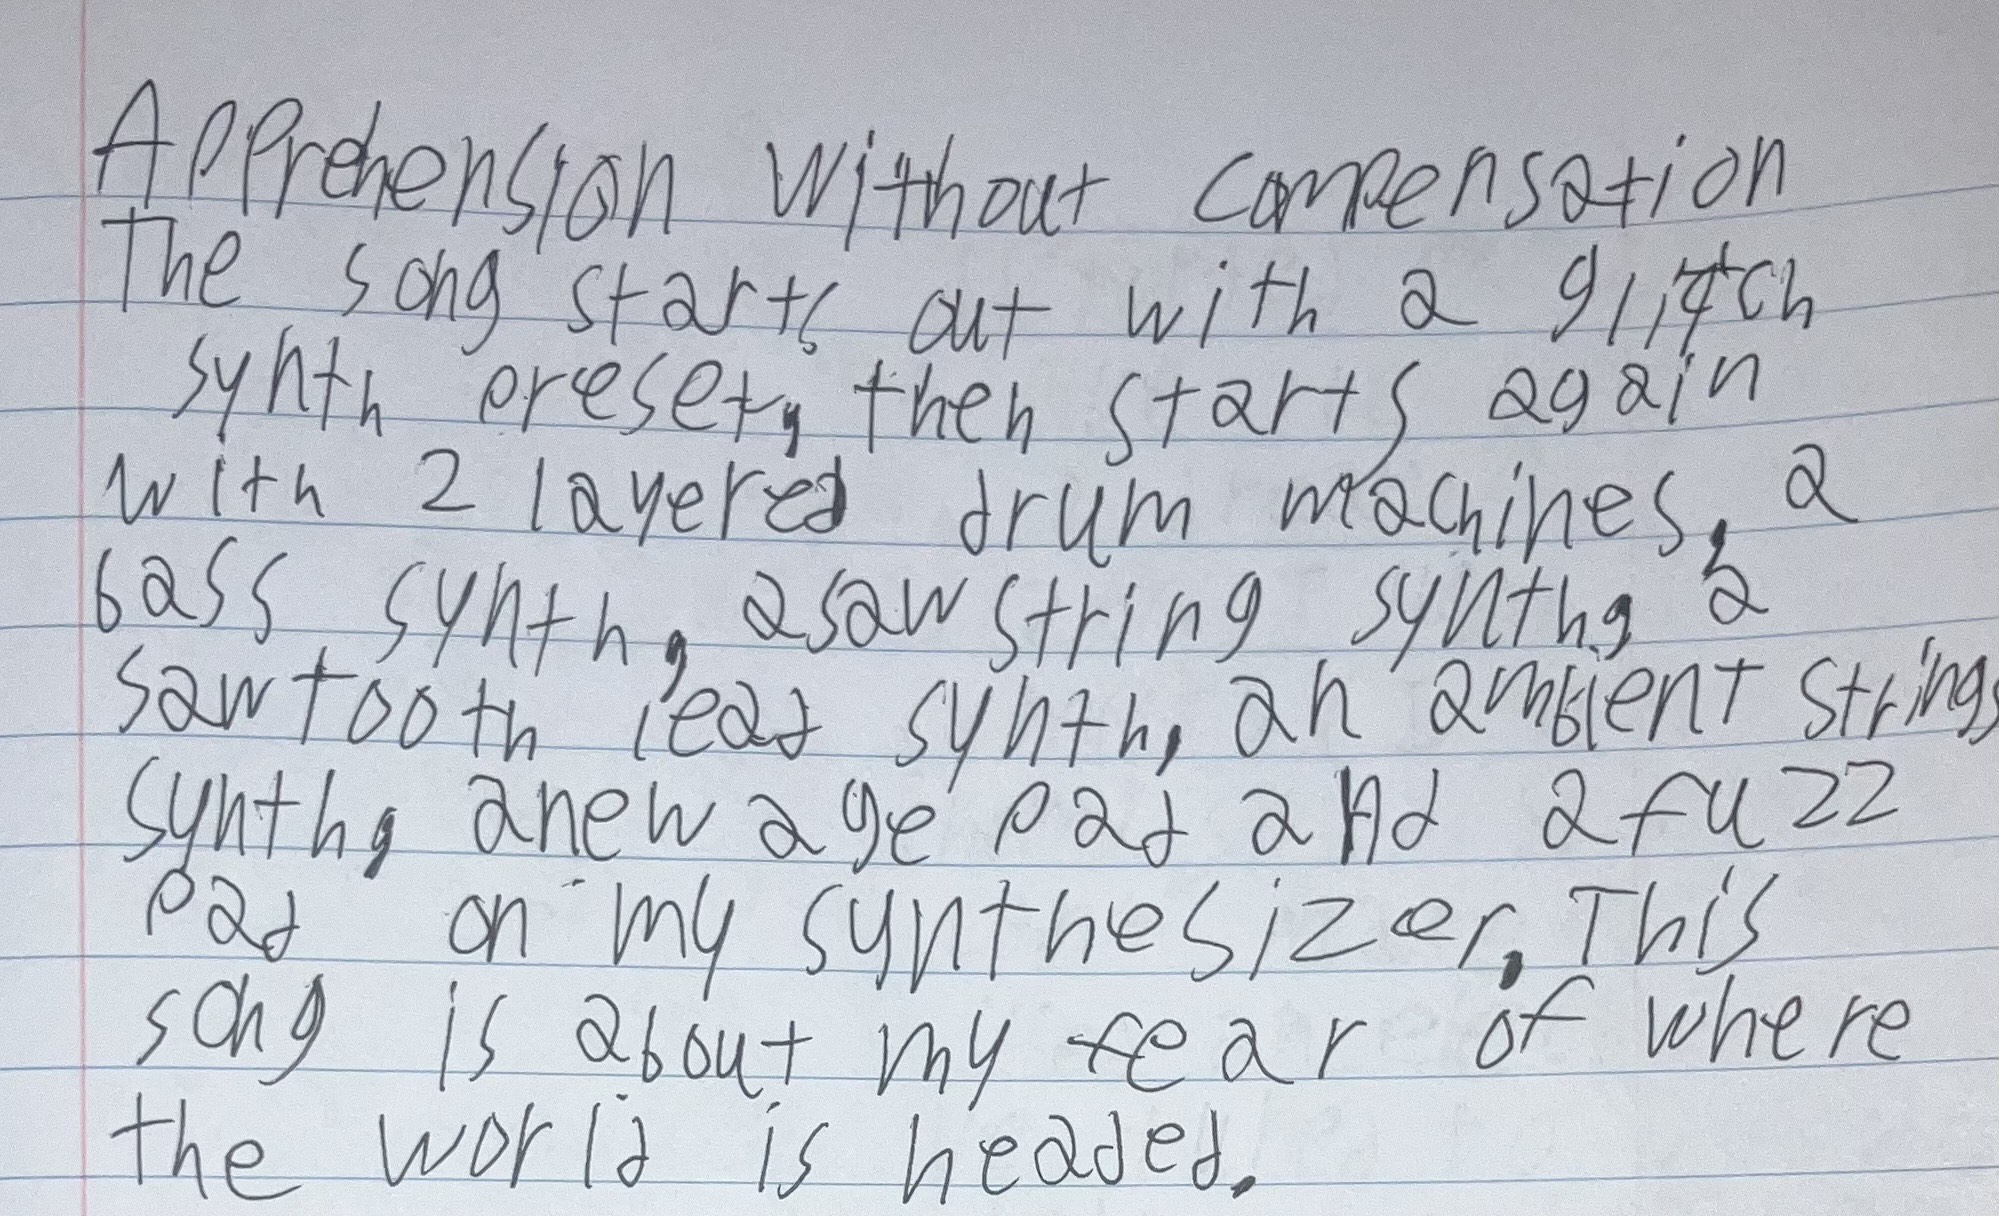 Apprehension Without Compensation
The song starts out with a glitch
synth preset, then starts again
with 2 layered drum machines, a
bass synth, a saw string synth, a
sawtooth lead synth, an ambient strings
synth, a new age pad and a fuzz
pad on my synthesizer. This
song is about my fear of where
the world is headed.